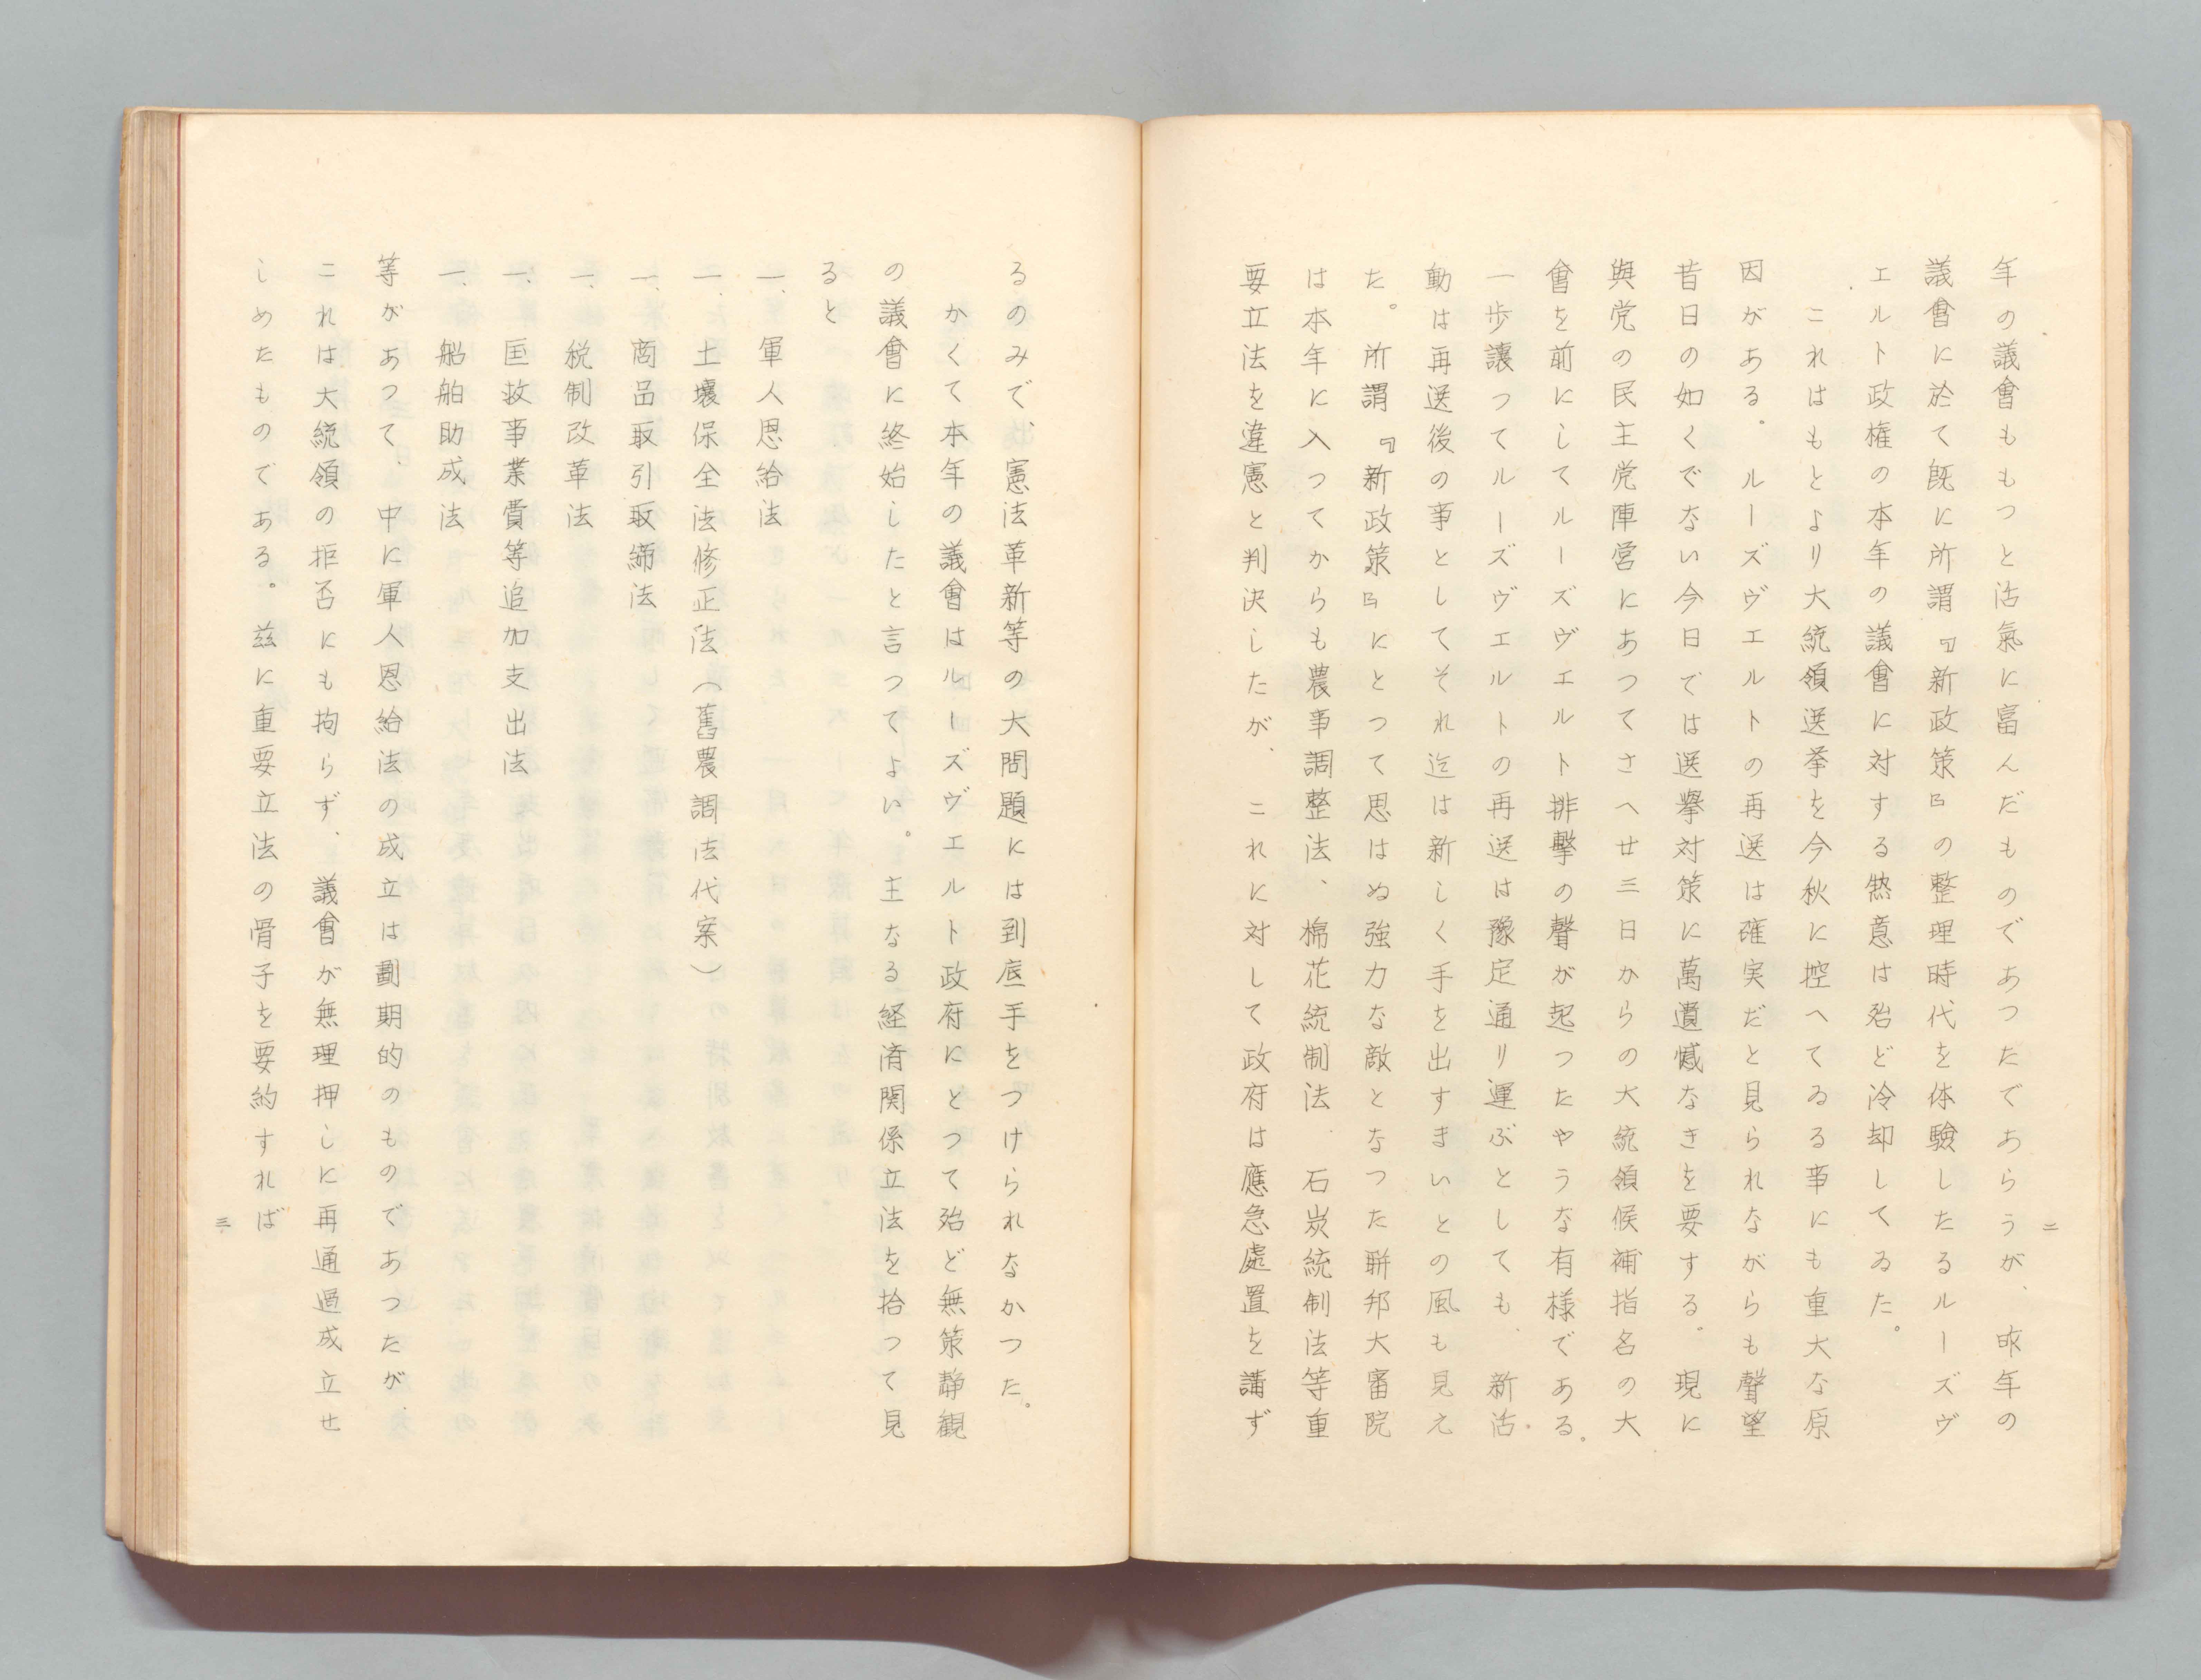 二
年の議會ももつと活氣に富んだものであつたであらうが、昨年の
議會に於て既に所謂『新政策』の整理時代を体驗したるルーズヴ
エルト政権の本年の議會に対する熱意は殆ど冷却してゐた。
これはもとより大統領選挙を今秋に控へてゐる事にも重大な原
因がある。ルーズヴエルトの再選は確実だと見られながらも聲望
昔日の如くでない今日では選擧対策に萬遺憾なきを要する。現に
與党の民主党陣営にあつてさへ廿三日からの大統領候補指名の大
會を前にしてルーズヴエルト排擊の聲が起つたやうな有様である。
一歩讓つてルーズヴエルトの再選は豫定通り運ぶとしても、新活
動は再選後の事としてそれ迄は新しく手を出すまいとの風も見え
た。所謂『新政策』にとつて思はぬ強力な敵となつた聯邦大審院
は本年に入つてからも農事調整法、棉花統制法、石炭統制法等重
要立法を違憲と判決したが、これに対して政府は應急處置を講ず
るのみで、憲法革新等の大問題には到底手をつけられなかつた。
かくて本年の議會はルーズヴエルト政府にとつて殆ど無策静観
の議會に終始したと言つてよい。主なる経済関係立法を拾つて見
ると
一、軍人恩給法
一、土壤保全法修正法（舊農調法代案）
一、商品取引取締法
一、税制改革法
一、匡救事業費等追加支出法
一、船舶助成法
等があつて、中に軍人恩給法の成立は劃期的のものであつたが、
これは大統領の拒否にも拘らず、議會が無理押しに再通過成立せ
しめたものである。茲に重要立法の骨子を要約すれば
三